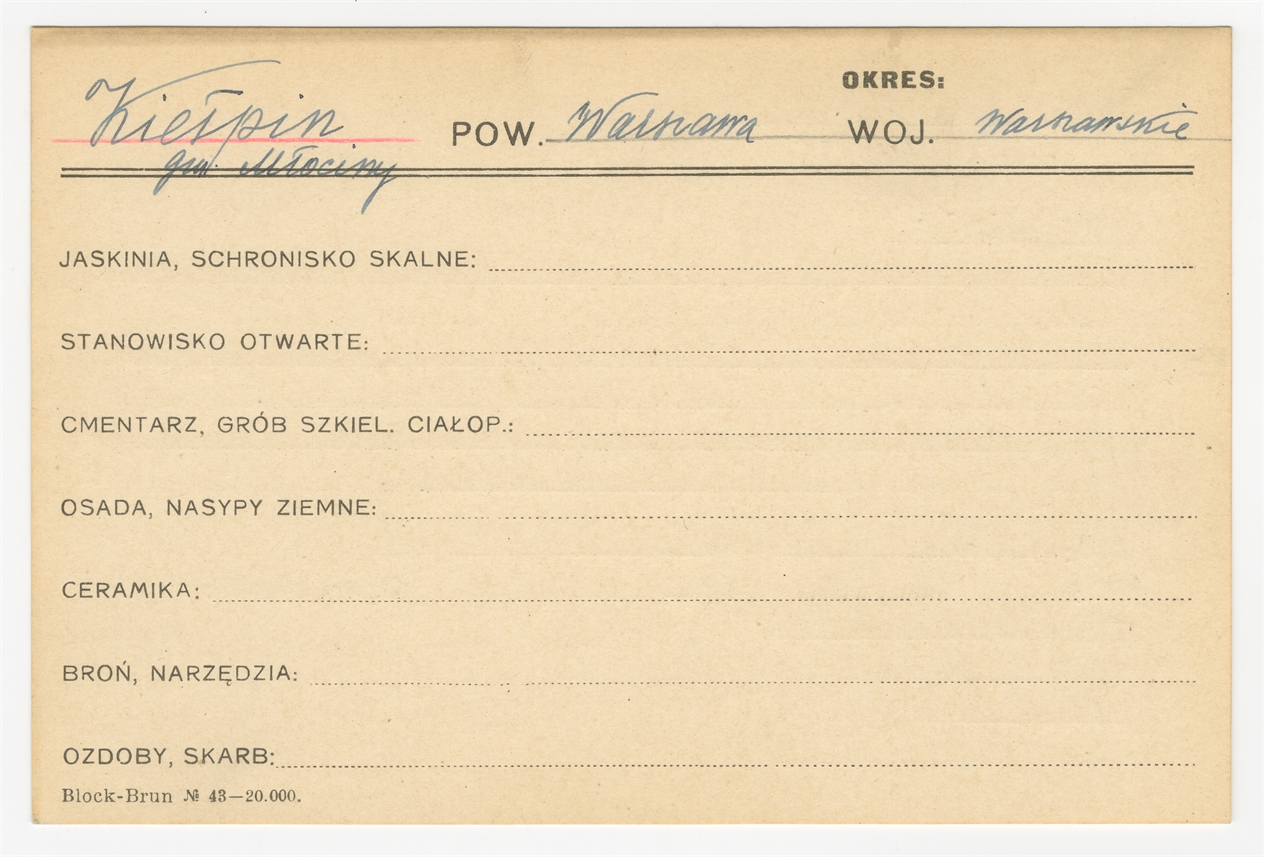 OKRES:
Kiełpin POW. Warszawa WOJ. Warszawskie
gm. Młociny
JASKINIA, SCHRONISKO SKALNE:
STANOWISKO OTWARTE:
CMENTARZ, GRÓB SZKIEL. CIAŁOP.:
OSADA, NASYPY ZIEMNE:
CERAMIKA:
BROŃ, NARZĘDZIA:
OZDOBY, SKARB:
Block-Brun № 43—20.000.